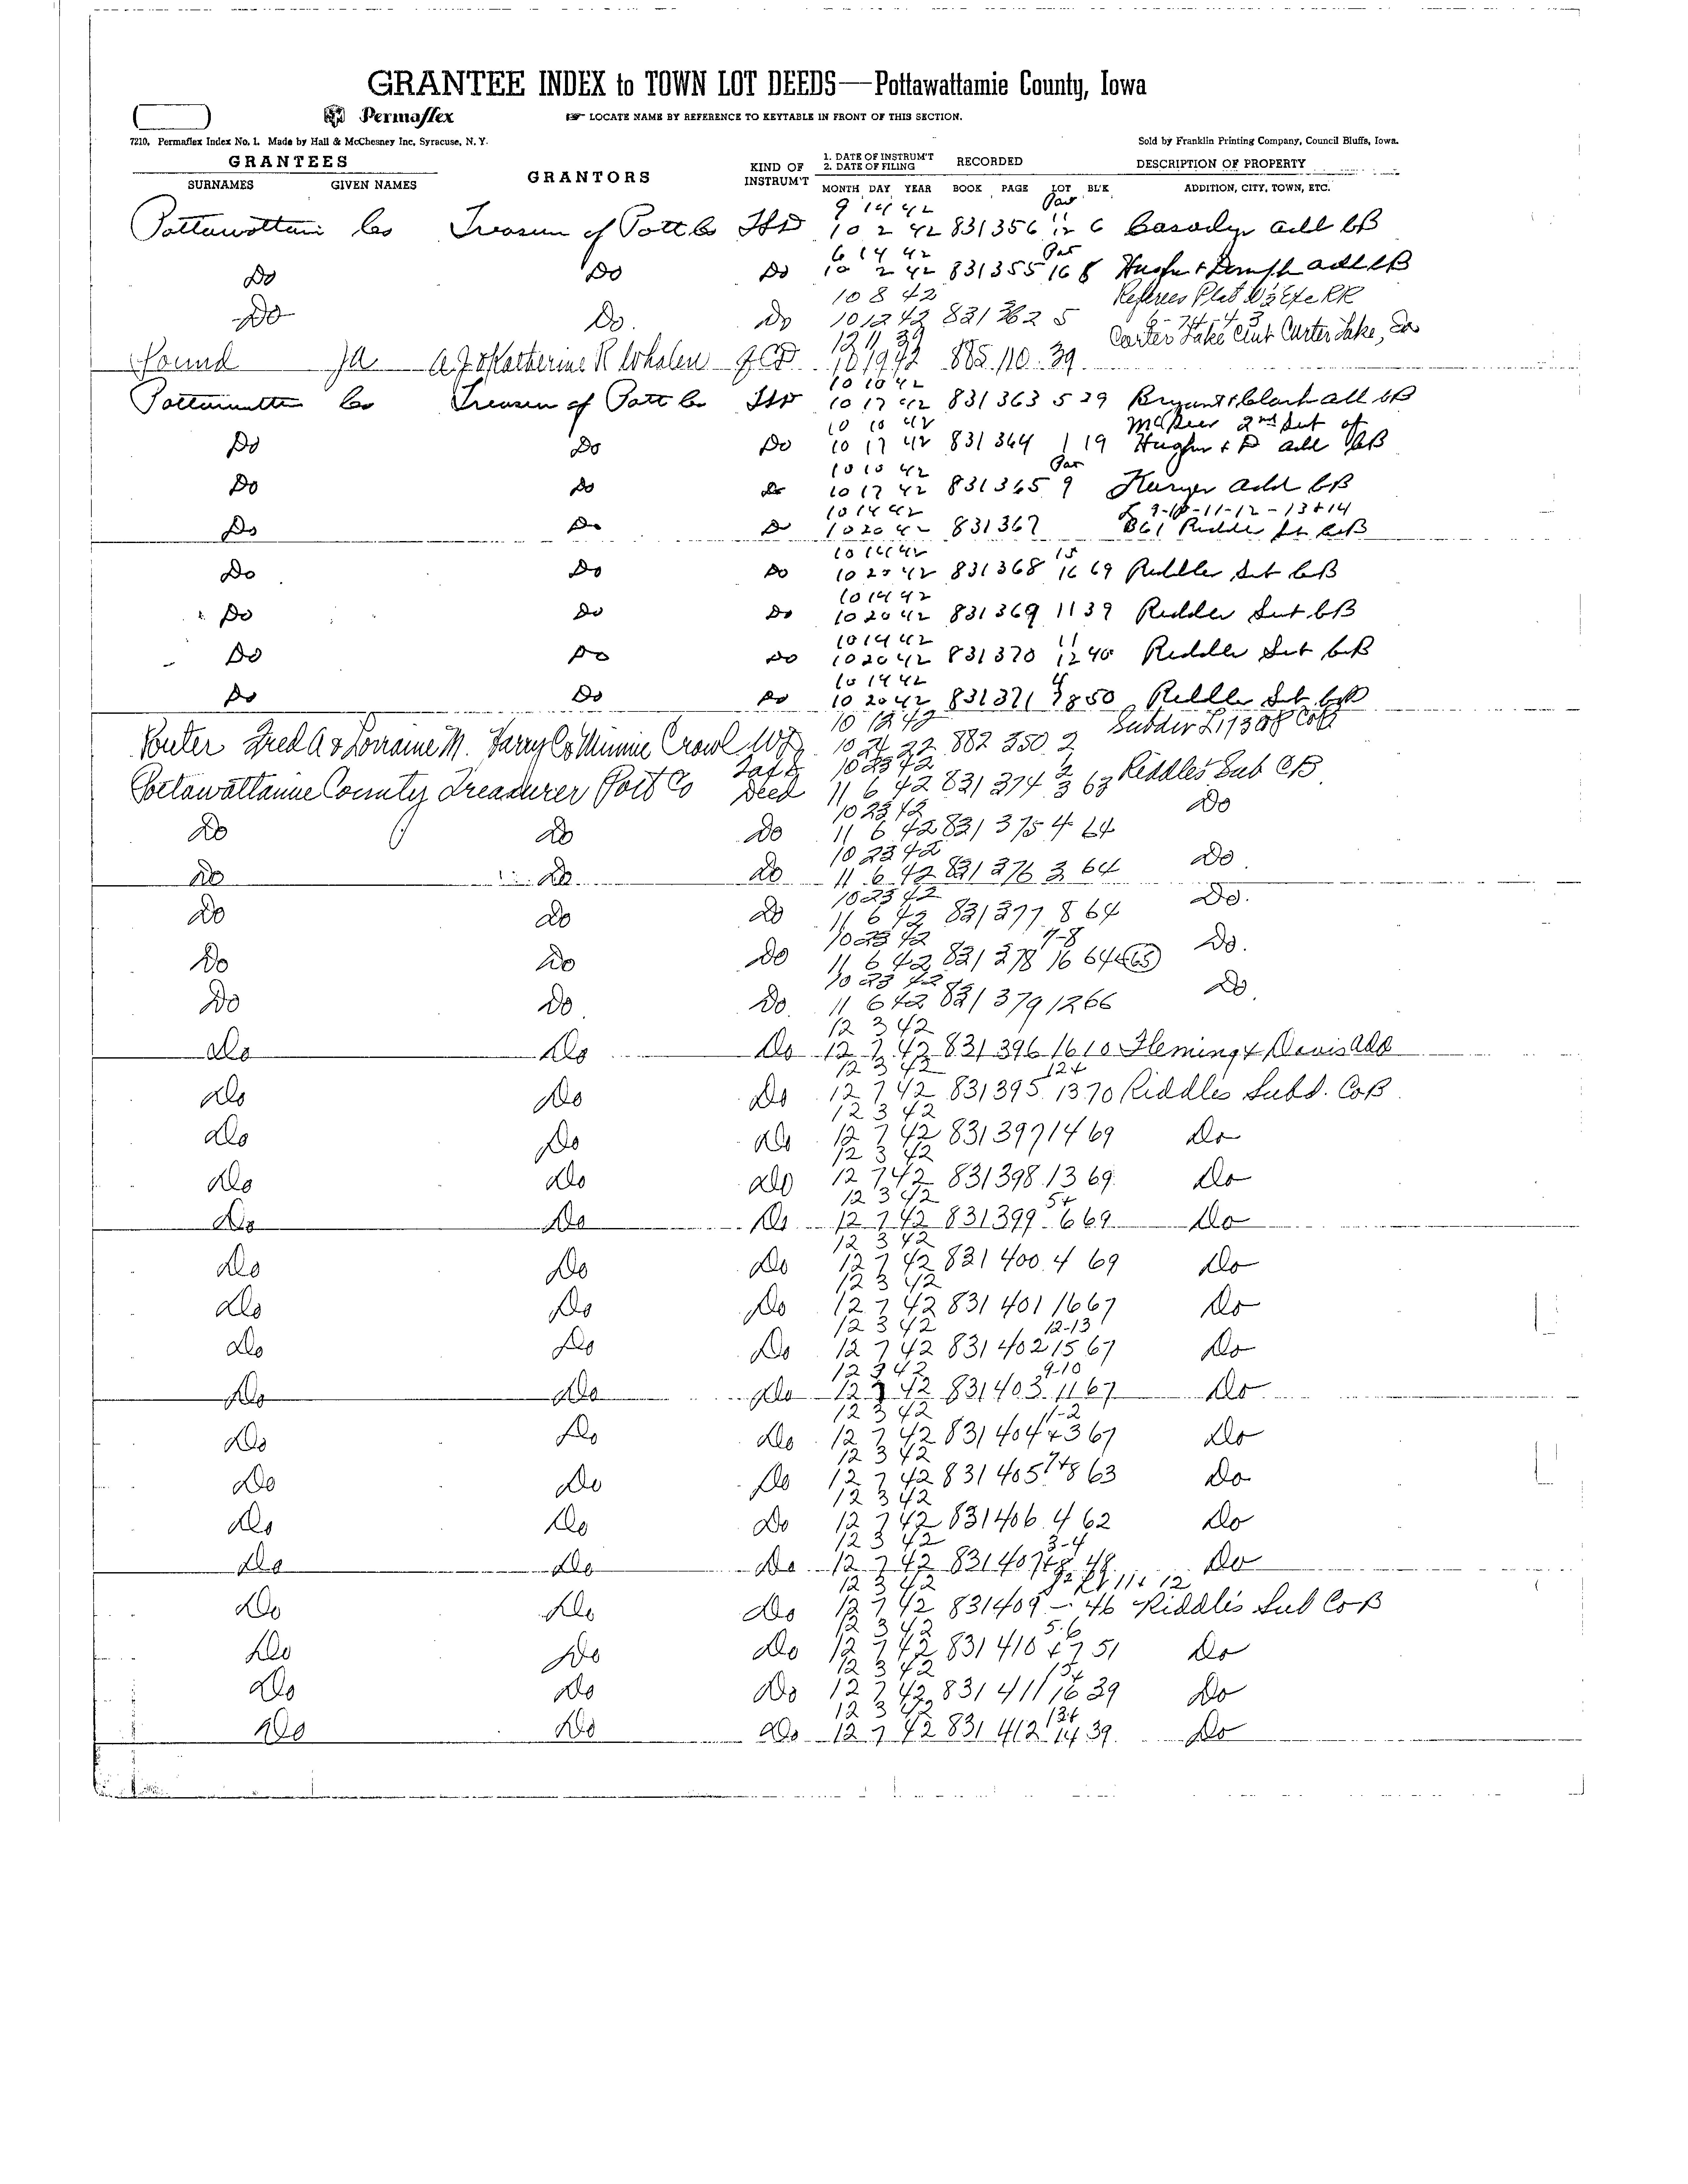 GRANTEE INDEX to TOWN LOT DEEDS—Pottawattamie County, Iowa
Permaflex ☞ LOCATE NAME BY REFERENCE TO KEYTABLE IN FRONT OF THIS SECTION.
7210, Permaflex Index No. 1. Made by Hall & McChesney Inc, Syracuse, N. Y. Sold by Franklin Printing Company, Council Bluffs, Iowa.
GRANTEES GRANTORS KIND OF INSTRUM'T 1. DATE OF INSTRUM'T 2. DATE OF FILING RECORDED DESCRIPTION OF PROPERTY
SURNAMES GIVEN NAMES MONTH DAY YEAR BOOK PAGE LOT BL'K ADDITION, CITY, TOWN, ETC.
9 14 42 Par 11
Co Treasurer of Pott Co 10 2 42 831 356 12 6 add CB
6 14 42 Par
Do Do Do 10 2 42 831 355 16 8 add CB
10 8 42 Referees Plat
Do Do. Do 10 12 42 831 362 5
12 11 39 Carter Lake, Ia
Pound Ja A J & Katherine R Whalen QCD 10 19 42 885 110 39
10 10 42
Co Treasurer of Pott Co 10 17 42 831 363 5 29 Bryant & Clark add CB
10 10 42
Do Do Do 10 17 42 831 364 1 19 Hughes & D add CB
10 10 42 Par
Do Do Do 10 17 42 831 365 9 add CB
10 14 42 9-10-11-12-13+14
Do Do Do 10 20 42 831 367 B61 Riddle CB
10 14 42 15
Do Do Do 10 20 42 831 368 16 69 Riddles Sub CB
10 14 42
Do Do Do 10 20 42 831 369 11 39 Riddles Sub CB
10 14 42 11
Do Do Do 10 20 42 831 370 12 40 Riddles Sub CB
10 14 42
Do Do Do 10 20 42 831 371 50 Riddles Sub CB
10 42 Subdiv
Fred A & Lorraine M. Harry C & Minnie Crowl WD 882 350 2
Tax 10 23 42 2 Riddles Sub CB
County Treasurer Pott Co Deed 11 6 42 831 374 3 63
10 23 42 Do
Do Do Do 11 6 42 831 375 4 64
10 23 42 Do
Do Do Do 11 6 42 831 376 3 64
10 23 42 Do.
Do Do Do 11 6 42 831 377 8 64
10 23 42 7-8 Do.
Do Do Do 11 6 42 831 378 16 64 & 65
10 23 42 Do.
Do Do Do 11 6 42 831 379 12 66
12 3 42
Do Do Do 12 7 42 831 396 16 10 Fleming & Davis Add
12 3 42 12+
Do Do Do 12 7 42 831 395 13 70 Riddles Subd. CoB
12 3 42
Do Do Do 12 7 42 831 397 14 69 Do
12 3 42
Do Do Do 12 7 42 831 398 13 69 Do
12 3 42 5+
Do Do Do 12 7 42 831 399 6 69 Do
12 3 42
Do Do Do 12 7 42 831 400 4 69 Do
12 3 42
Do Do Do 12 7 42 831 401 16 67 Do
12 3 42 12-13
Do Do Do 12 7 42 831 402 15 67 Do
12 3 42 9-10
Do Do Do 12 7 42 831 403 11 67 Do
12 3 42 1-2
Do Do Do 12 7 42 831 404 +3 67 Do
12 3 42
Do Do Do 12 7 42 831 405 7+8 63 Do
12 3 42
Do Do Do 12 7 42 831 406 4 62 Do
12 3 42 3-4
Do Do Do 12 7 42 831 407 +8 48 Do
12 3 42 11+12
Do Do Do 12 7 42 831 409 — 46 Riddles Sub CoB
12 3 42 5-6
Do Do Do 12 7 42 831 410 +7 51 Do
12 3 42 15+
Do Do Do 12 7 42 831 411 16 39 Do
12 3 42 13+
Do Do Do 12 7 42 831 412 14 39 Do